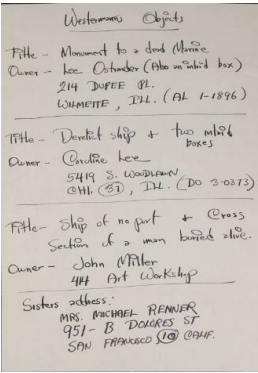 Westermann's Objects
Title - Monument to a dead Marine
Owner - Lee Ostrander (Also an inlaid box)
214 DUPEE PL.
WILMETTE, ILL. (AL 1-1896)
Title - Derelict ship & two inlaid
boxes
Owner - Caroline Lee
5419 S. WOODLAWN
CHI. (37), ILL. (DO 3-0373)
Title - Ship of no port & Cross
Section of a man buried alive.
Owner - John Miller
414 Art Workshop
Sisters address:
MRS. MICHAEL RENNER
951-B DOLORES ST
SAN FRANCISCO (10) CALIF.